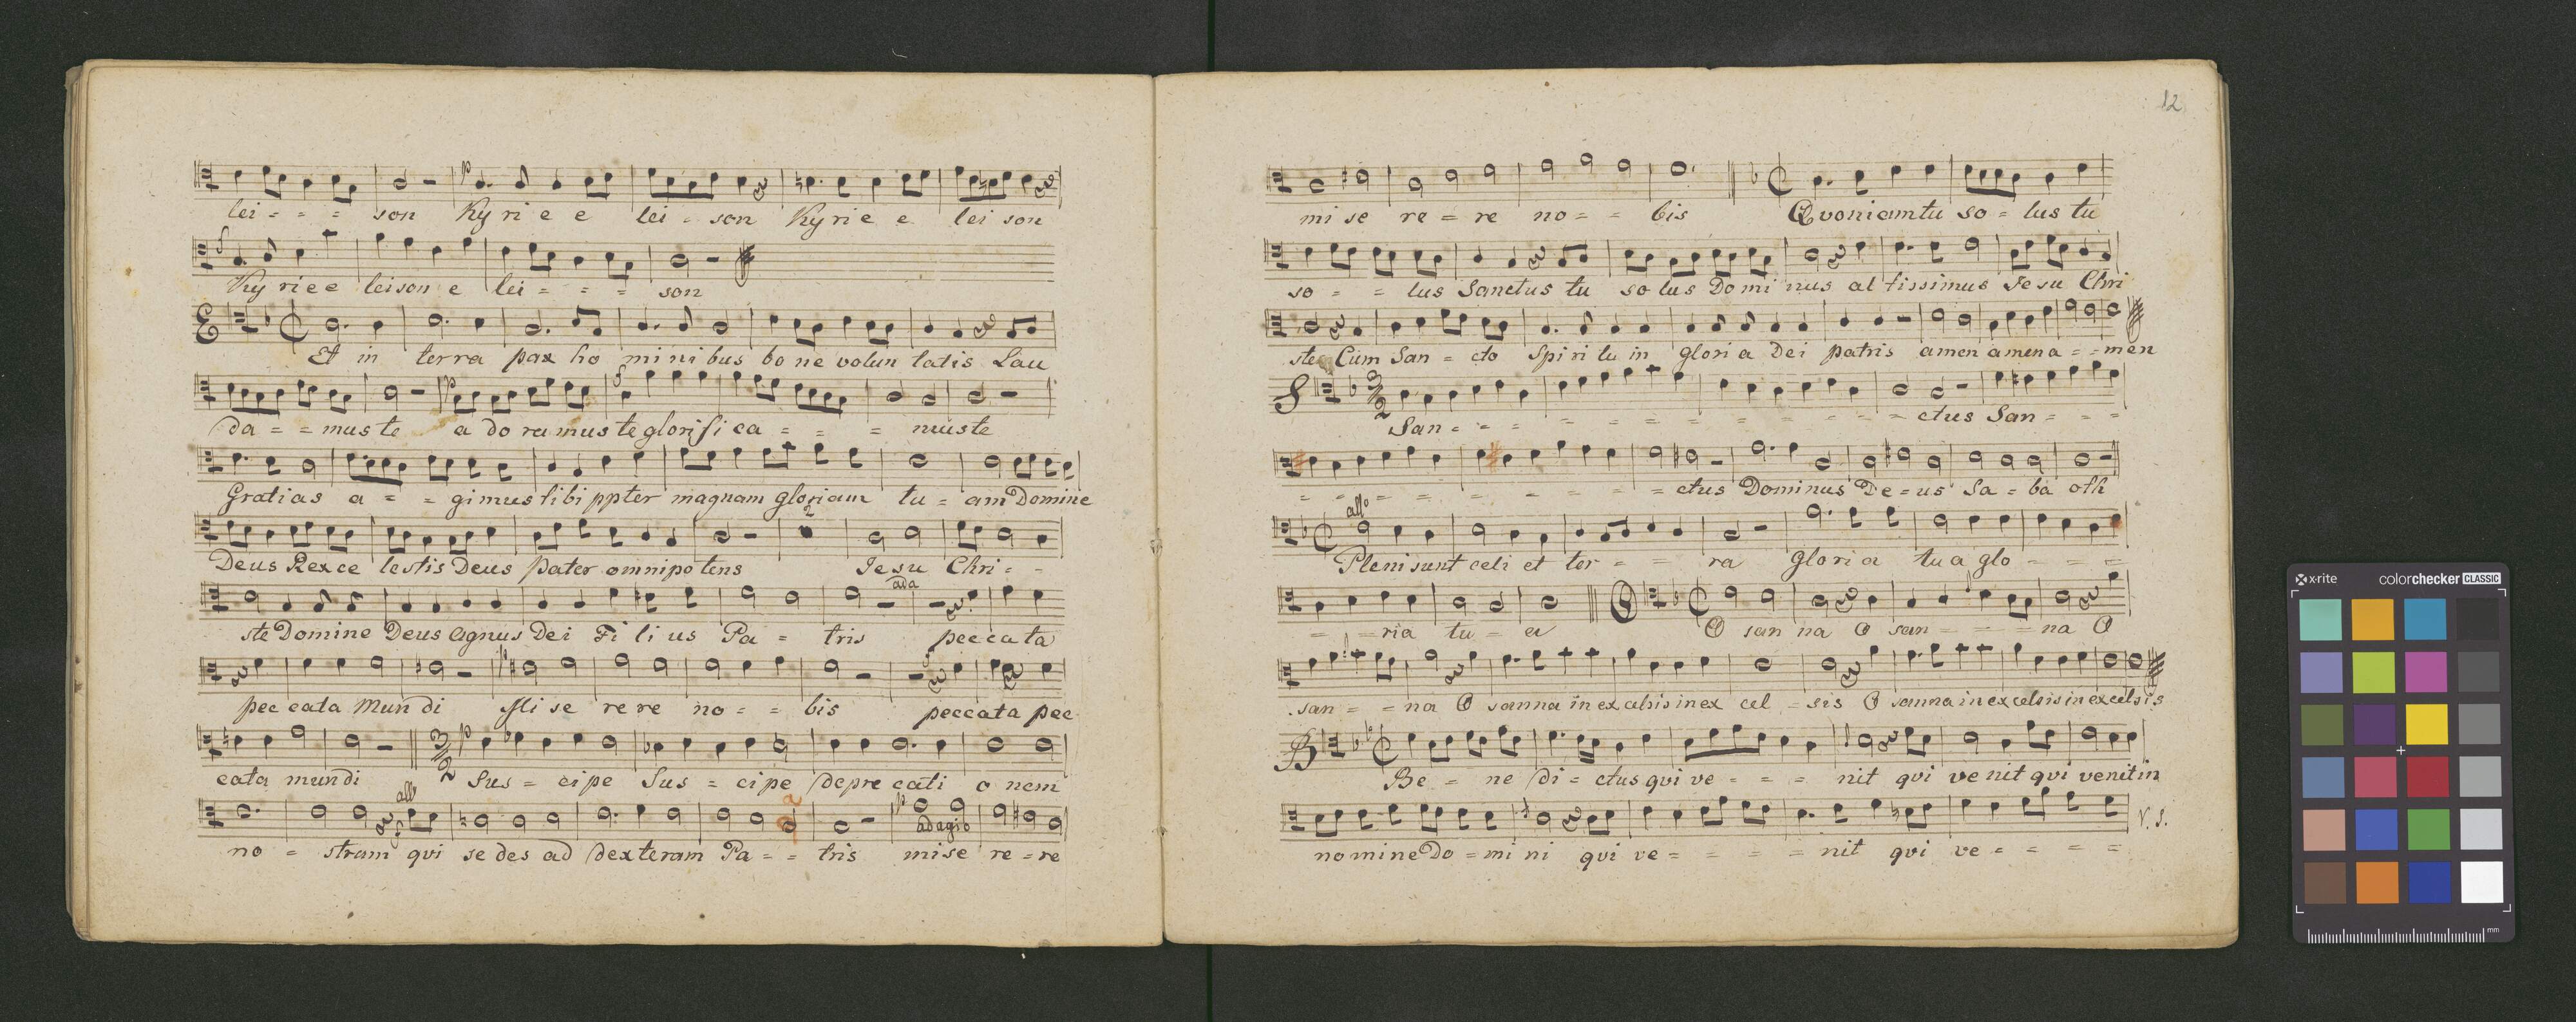 lei - - - son Ky ri e e lei - son Ky rie e lei son
Ky rie e leison e lei - - - son
Et in terra pax ho mi ni bus bo ne volun tatis Lau
da - - mus te a do ramus te glori fi ca - - - mus te
Gratias a - - gimus tibi ppter magnam gloriam tu - am Domine
Deus Rex ce lestis Deus pater omnipo tens Jesu Chri - -
ada
ste Domine Deus Agnus Dei Fi li us Pa - tris peccata
pec cata Mun di Mi se re re no - - bis peccata pec
cata mun di Sus - cipe Sus - cipe depre cati o nem
all
adagio
no - stram qvi se des ad dexteram Pa - - tris mise re - re
12
mi se re - re no - - bis Qvoniam tu so - lus tu
so - - lus Sanctus tu so lus Do mi nus al tissimus Jesu Chri
ste Cum San - cto Spi ri tu in glori a Dei patris amen amen a - - men
San - - - - - - - - - - - ctus San - - -
- - - - - - - - - ctus Dominus De - us Sa - ba oth
allo
Pleni sunt celi et ter - - ra gloria tua glo - - -
- - ria tu - a O san na O san - - - na O
san - - na O sanna in excelsis in ex cel - sis O sanna in excelsis in excelsis
Be - ne di - ctus qvi ve - - - nit qvi ve nit qvi venit in
V. S.
nomine Do - mi ni qvi ve - - - - nit qvi ve - - - -
x-rite colorchecker CLASSIC
mm